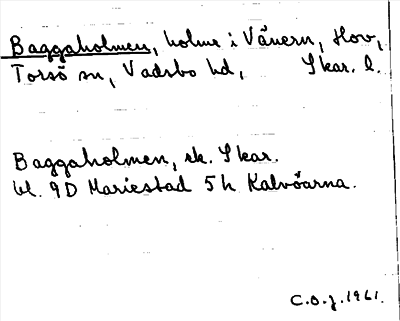 Baggaholmen, holme i Vänern, Hov,
Torsö sn, Vadsbo hd, Skar. l.
Baggaholmen, ek. Skar.
bl. 9D Mariestad 5h Kalvöarna.
C.O.J. 1961.